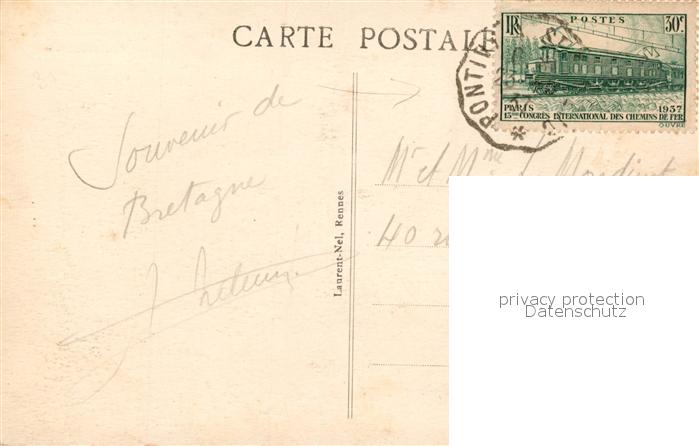 CARTE POSTALE
RF POSTES 30c
PARIS 1937
13me CONGRÈS INTERNATIONAL DES CHEMINS DE FER
OUVRÉ
PONTI
Souvenir de
Bretagne
Laurent-Nel, Rennes
Mr et Mme
40
privacy protection
Datenschutz